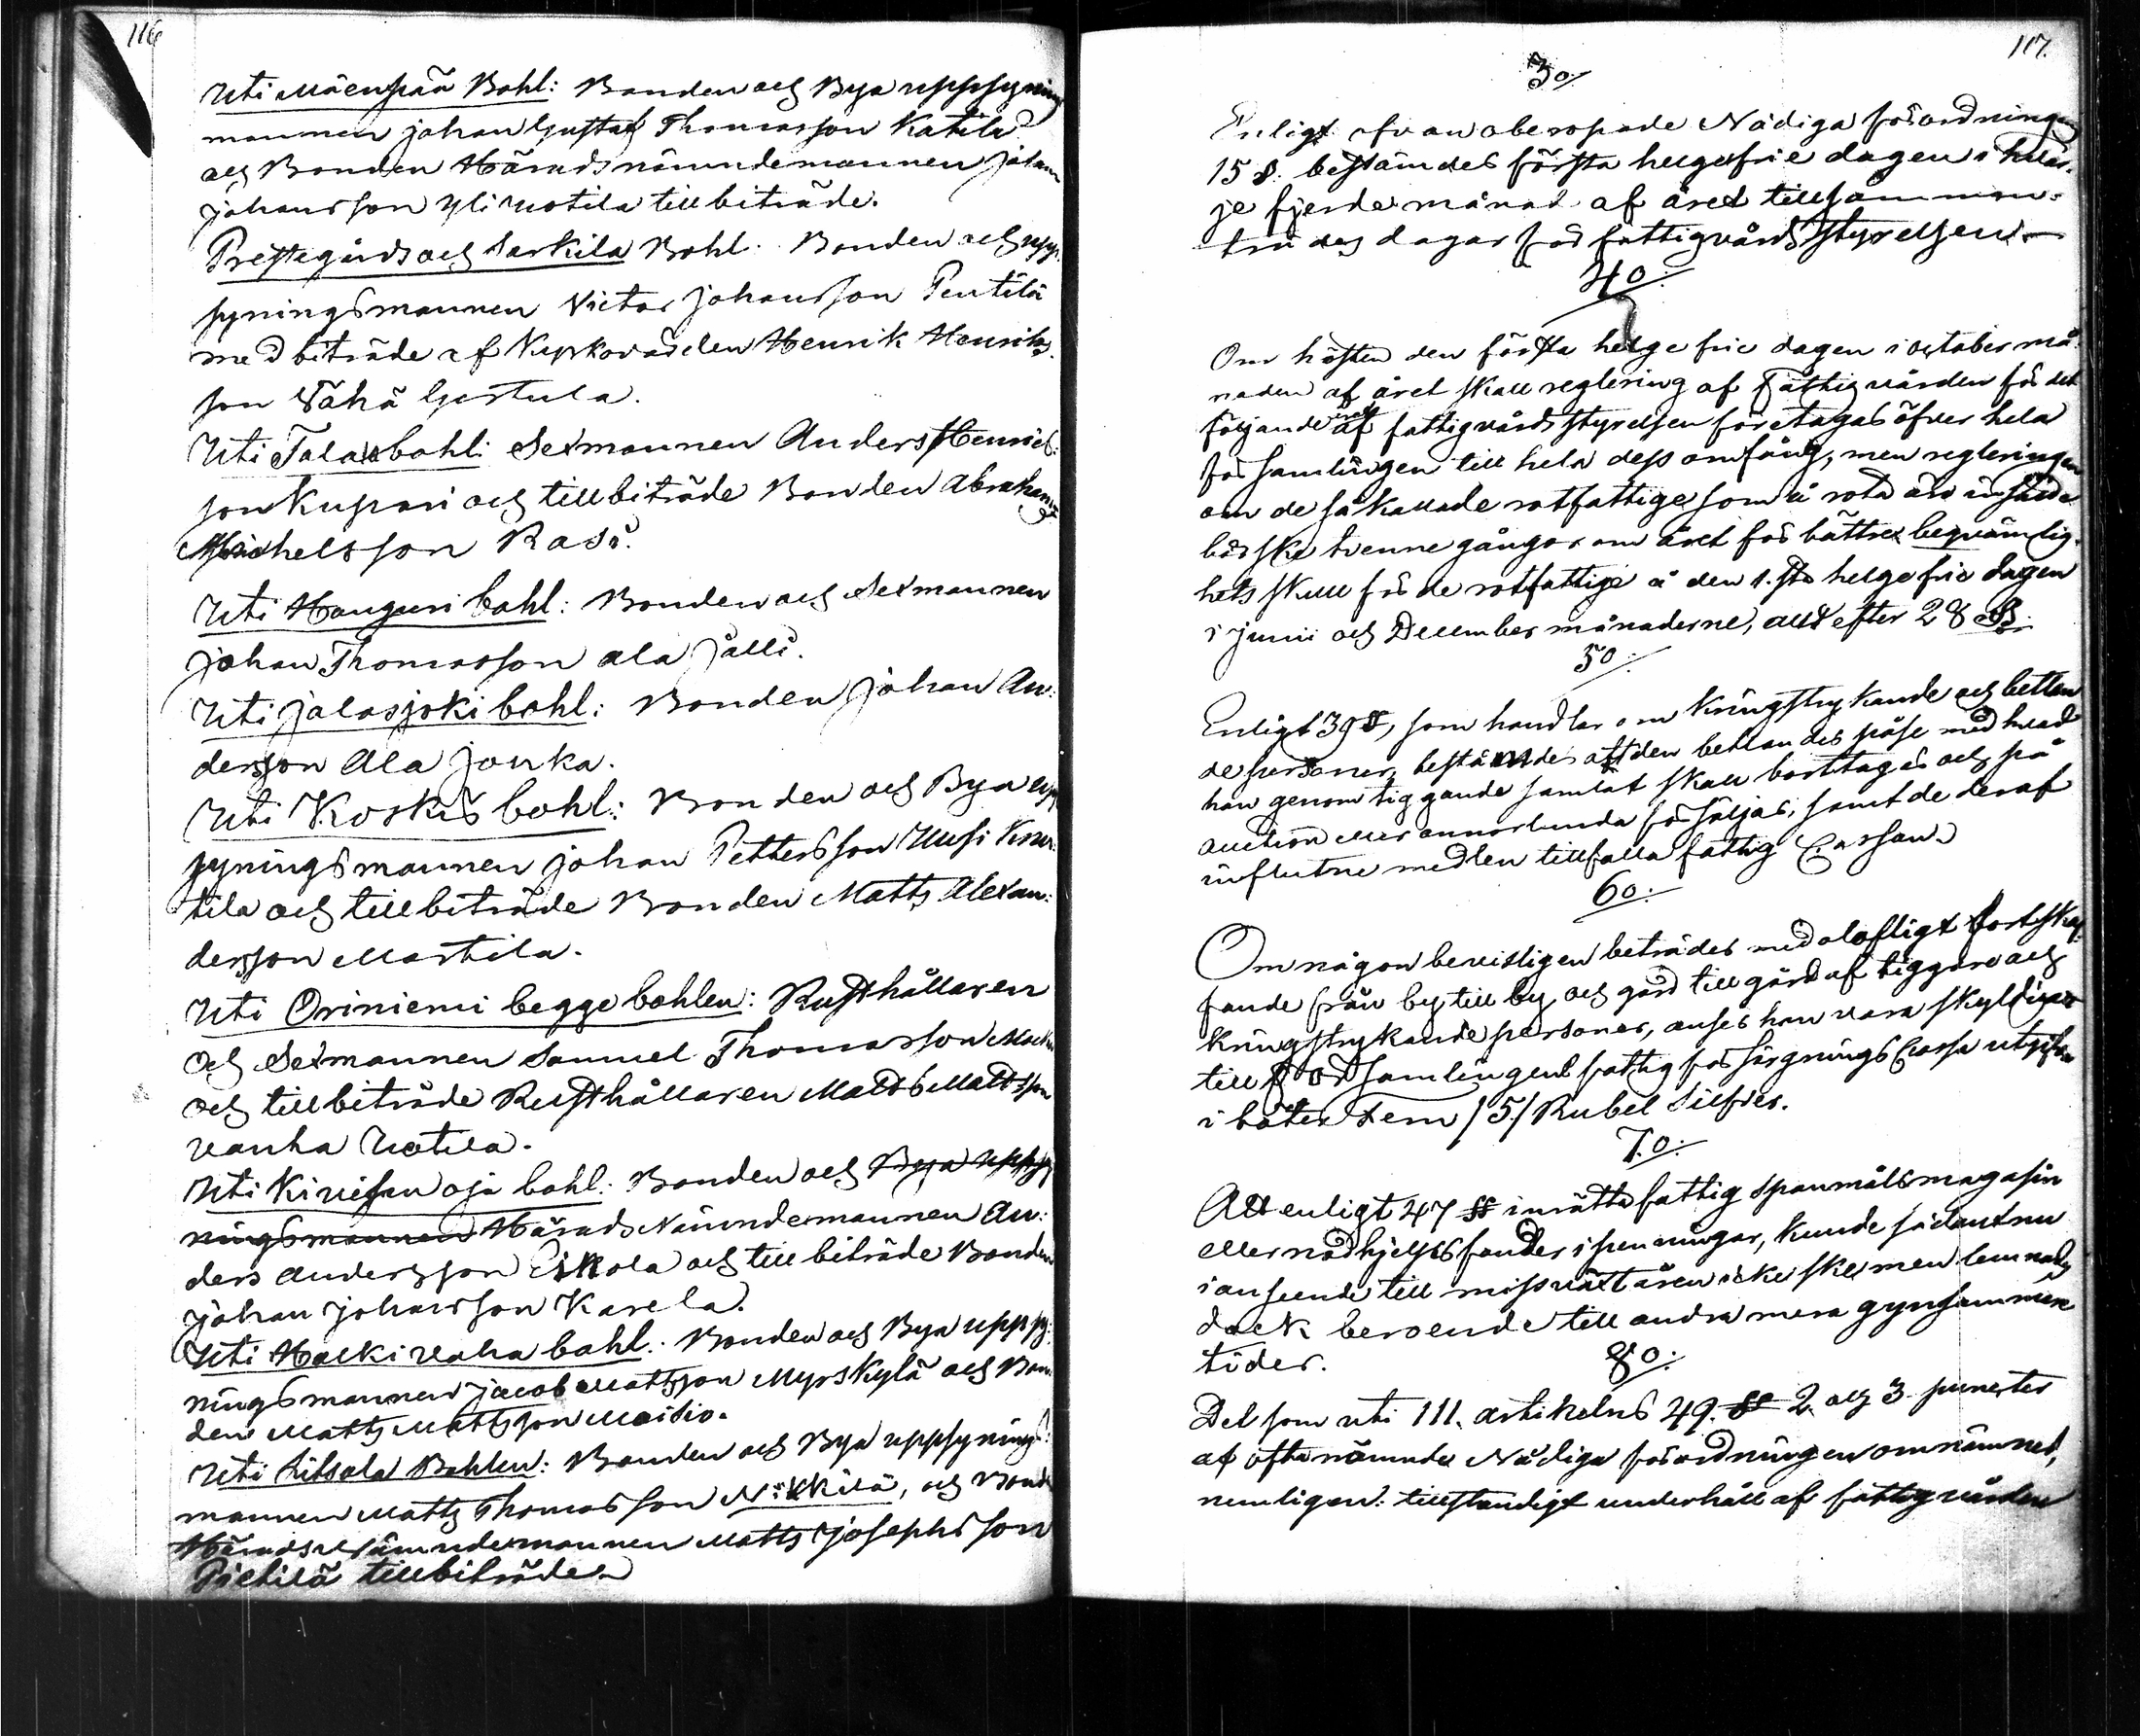 116
Uti Mäenpää Bohl: Bonden och Bya uppsynings
mannen Johan Gustaf Thomasson Katila
och Bonden Häradsnämndemannen Johan
Johansson Yli Uotila till biträde.
Prestegårds och Sarkila Bohl. Bonden och upp-
syningsmannen Victor Johansson Pentilä
med biträde af Kyrkovärden Henrik Henriks
son Vähä Gertula.
Uti Talasbohl: Sexmannen Anders Henriks:
son Kupari och till biträde Bonden Abraham
Michelsson Rasi.
Uti Hauguri bohl: Bonden och Sexmannen
Johan Thomasson Ala Jälli.
Uti Jalasjoki bohl: Bonden Johan An:
dersson Ala Jouka.
Uti Koskis bohl: Bonden och Bya upp
syningsmannen Johan Pettersson Uusi Knu:
tila och till biträde Bonden Matts Alexan:
dersson Martila.
Uti Oriniemi begge bohlen: Rusthållaren
och Sexmannen Samuel Thomasson
och till biträde Rusthållaren Matts Mattsson
vanha Uotila.
Uti Kiviesenoja bohl: Bonden och Bya uppsy
ningsmannen Härads Nämndemannen An:
ders Andersson Eskola och till biträde Bonden
Johan Johansson Karela.
Uti Haekivaha bohl: Bonden och Bya uppsy:
ningsmannen Jacob Mattsson Myrskylä och Bon:
den Matts Mattsson Maisio.
Uti Litsola Bohlen: Bonden och Bya uppsynings:
mannen Matts Thomasson Nikkilä, och Bond
Häradsnämndemannen Matts Josephsson
Pietilä till biträde.
117.
3o/
Enligt ofvanåberopade Nådiga förordnings
15 §. bestämdes första helgefrie dagen i hvar:
je fjerde månad af året till samman:
trädes dagar för fattigvårds Styrelsen.
4o:
Om hösten den första helgefrie dagen i october må:
naden af året skall reglering af fattigvården för det
följande året af fattigvårdsstyrelsen företagas öfver hela
församlingen till hela dess omfång, men regleringen
om de så kallade rotfattige som å rota äro införde
bör ske trenne gångor om året för bättre beqvämlig:
hets skull för de rotfattige å den 1.sta helgefrie dagen
i Junii och December månaderne, allt efter 28 §.
5o:
Enligt 39 §, som handlar om kringstrykande och bettlan
de personer, bestämdes att den bettlandes påse med hvad
han genom tiggande samlat skall borttagas och på
auction eller annorlunda försäljas, samt de deraf
influtne medlen tillfalla fattig Cassan.
6o:
Om någon bevisligen beträdes med olofligt fortskaf:
fande från by till by och gård till gård af tiggare och
kringstrykande personer, anses han vara skyldig att
till Församlingens fattig försörgnings Cassa utgifva
i böter Fem /5/ Rubel Silfver.
7.o:
Att enligt 47 §§ inrätta fattig Spanmålsmagasin
eller nödhjelpsfonder i penningar, kunde sådant nu
i anseende till missväxtåren icke ske men lemnades
dock beroende till andra mera gynsamman
tider.
8o:
Det som uti III. artikelns 49. §§ 2 och 3 puncter
af ofta nämnde Nådiga förordningen omnämnes,
nemligen: tillständigt underhåll af fattigvården